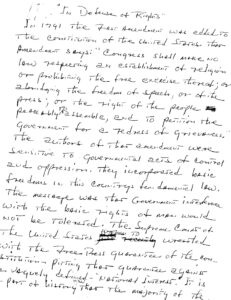 "In Defense of Rights"
In 1791 the Free Amendment was added to
the constitution of the United States. That
Amendment says: "Congress shall make no
law respecting an establishment of religion
or prohibiting the free exercise thereof; or
abridging the freedom of speech, or of the
press; or the right of the people
peaceably assemble, and to petition the
Government for a redress of grievances."
The authors of that amendment were
sensitive to Governmental acts of control
and oppression. They incorporated basic
freedoms in this country's fundamental law.
The message was that Government interference
with the basic rights of man would
not be tolerated. The Supreme Court of
the United States wrestled
with the Free Press guarantee of the con-
stitution pitting that guarantee against
vaguely defined "National Interest". It is
part of history that the majority of the